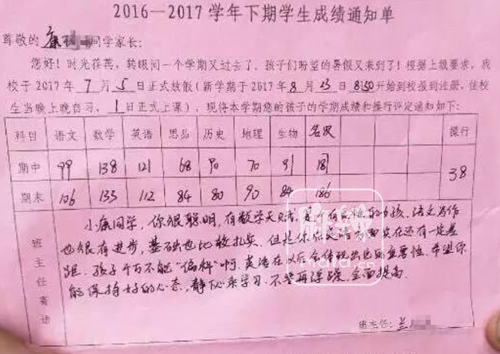 2016—2017 学年下期学生成绩通知单
尊敬的 康 同学家长：
您好！时光荏苒，转眼间一个学期又过去了，孩子们盼望的暑假又来到了！根据上级要求，我
校于 2017 年 7 月 5 日正式放假（新学期于 2017 年 8 月 23 日 8:30 开始到校报到注册，住校
生当晚上晚自习，1 日正式上课），现将本学期您的孩子的学期成绩和操行评定通知如下：
科目 语文 数学 英语 思品 历史 地理 生物 名次 操行
期中 99 138 121 68 90 70 91 181 38
期末 106 133 112 84 80 90 84 186
班主任寄语
小康同学，你很聪明，有数学天赋，是个有 的小孩，语文写作
也很有进步，基础也比较扎实。但是你 英语 实在还有一定差
距，孩子千万不能“偏科”啊，英语在以后会体现出它的重要性。希望你
能保持好的心态，静下心来学习，不管再得 ，全面提高。
班主任：兰